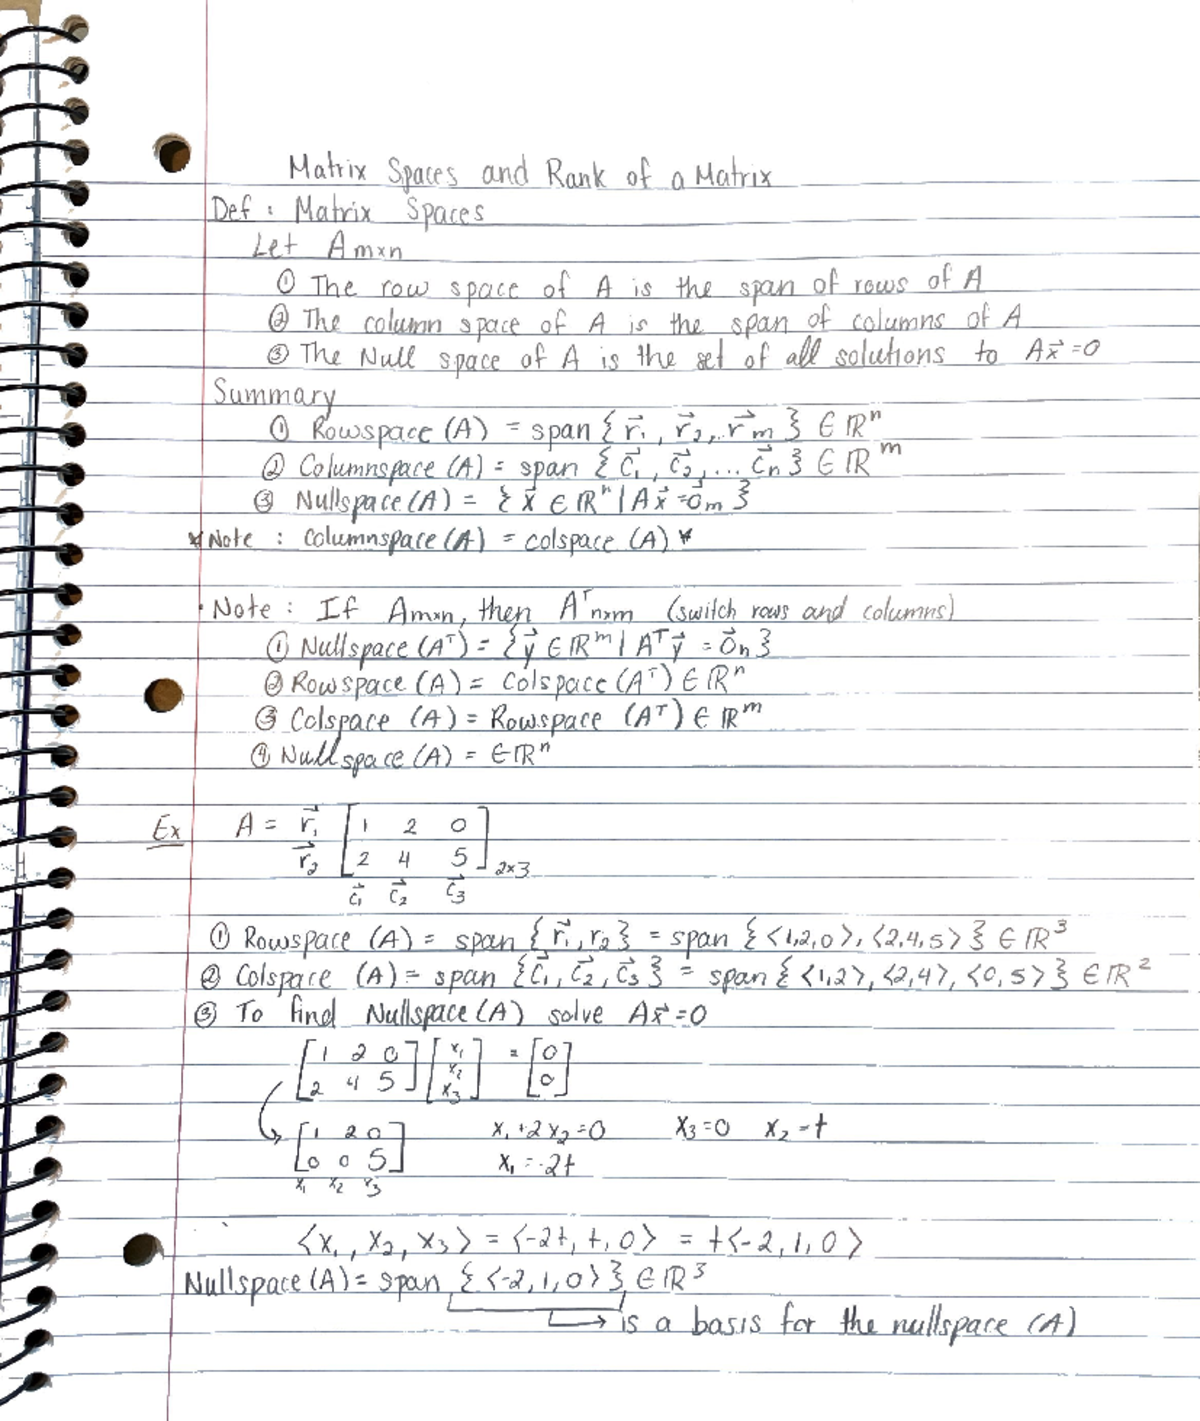 Matrix Spaces and Rank of a Matrix
Def: Matrix Spaces
Let Amxn
① The row space of A is the span of rows of A
② The column space of A is the span of columns of A
③ The Null space of A is the set of all solutions to Ax⃗=0
Summary
① Rowspace (A) = span {r⃗₁, r⃗₂,..r⃗m} ∈ ℝⁿ
② Columnspace (A) = span {c⃗₁, c⃗₂,... c⃗n} ∈ ℝᵐ
③ Nullspace (A) = {x⃗ ∈ ℝⁿ | Ax⃗=0⃗m}
*Note : Columnspace (A) = colspace (A)*
· Note : If Amxn, then Aᵀnxm (switch rows and columns)
① Nullspace (Aᵀ) = {y⃗ ∈ ℝᵐ | Aᵀy⃗ = 0⃗n}
② Rowspace (A) = Colspace (Aᵀ) ∈ ℝⁿ
③ Colspace (A) = Rowspace (Aᵀ) ∈ ℝᵐ
④ Nullspace (A) = ∈ ℝⁿ
Ex A = r⃗₁ [1 2 0
r⃗₂ 2 4 5] 2x3
c⃗₁ c⃗₂ c⃗₃
① Rowspace (A) = span {r⃗₁, r₂} = span {<1,2,0>, <2,4,5>} ∈ ℝ³
② Colspace (A) = span {c⃗₁, c⃗₂, c⃗₃} = span {<1,2>, <2,4>, <0,5>} ∈ ℝ²
③ To find Nullspace (A) solve Ax⃗=0
[1 2 0 [x₁ = [0
x₂
2 4 5] x₃] 0]
[1 2 0 x₁+2x₂=0 x₃=0 x₂=t
0 0 5] x₁=-2t
x₁ x₂ x₃
<x₁, x₂, x₃> = <-2t, t, 0> = t<-2, 1, 0>
Nullspace (A) = span {<-2,1,0>} ∈ ℝ³
→ is a basis for the nullspace (A)